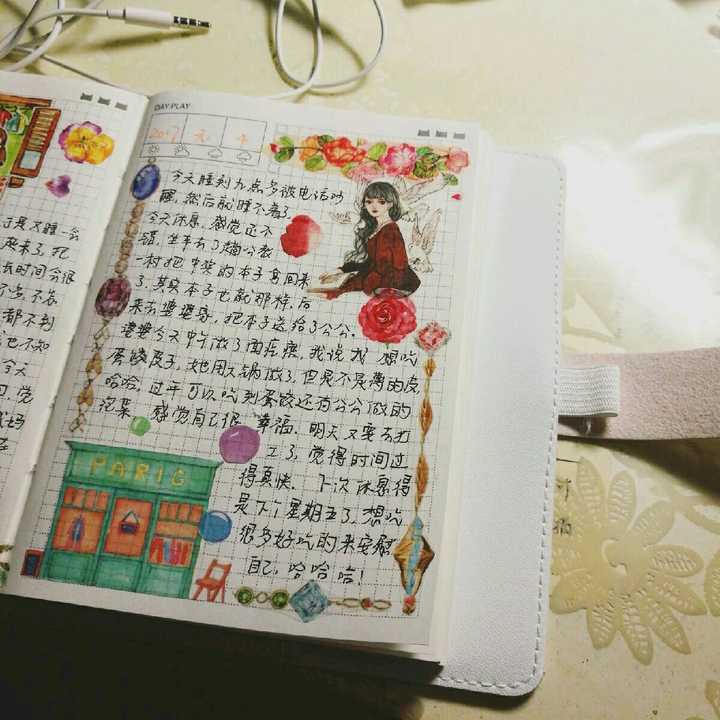 DAY PLAY
2017
今天睡到九点多被电话吵
醒,然后就睡不着了,
今天休息,感觉还不
错,坐车去了趟公农
一村把中奖的本子拿回来
了,其实本子也就那样,后
来去婆婆家,把本子送给了公公.
婆婆今天中午做了面疙瘩,我说我想吃
蛋饺皮子,她用大锅做了,但是不是薄的皮
哈哈,过年可以吃到蛋饺还有公公做的
炮集,感觉自己很幸福.明天又要去打
工了,觉得时间过
得真快.下次休息得
是下个星期五了,想吃
很多好吃的来安慰
自己,哈哈哈!
PARIC
于是又睡一会
起来了,把
长时间会很
不在
都不到
也不知
今天
觉
我妈
在